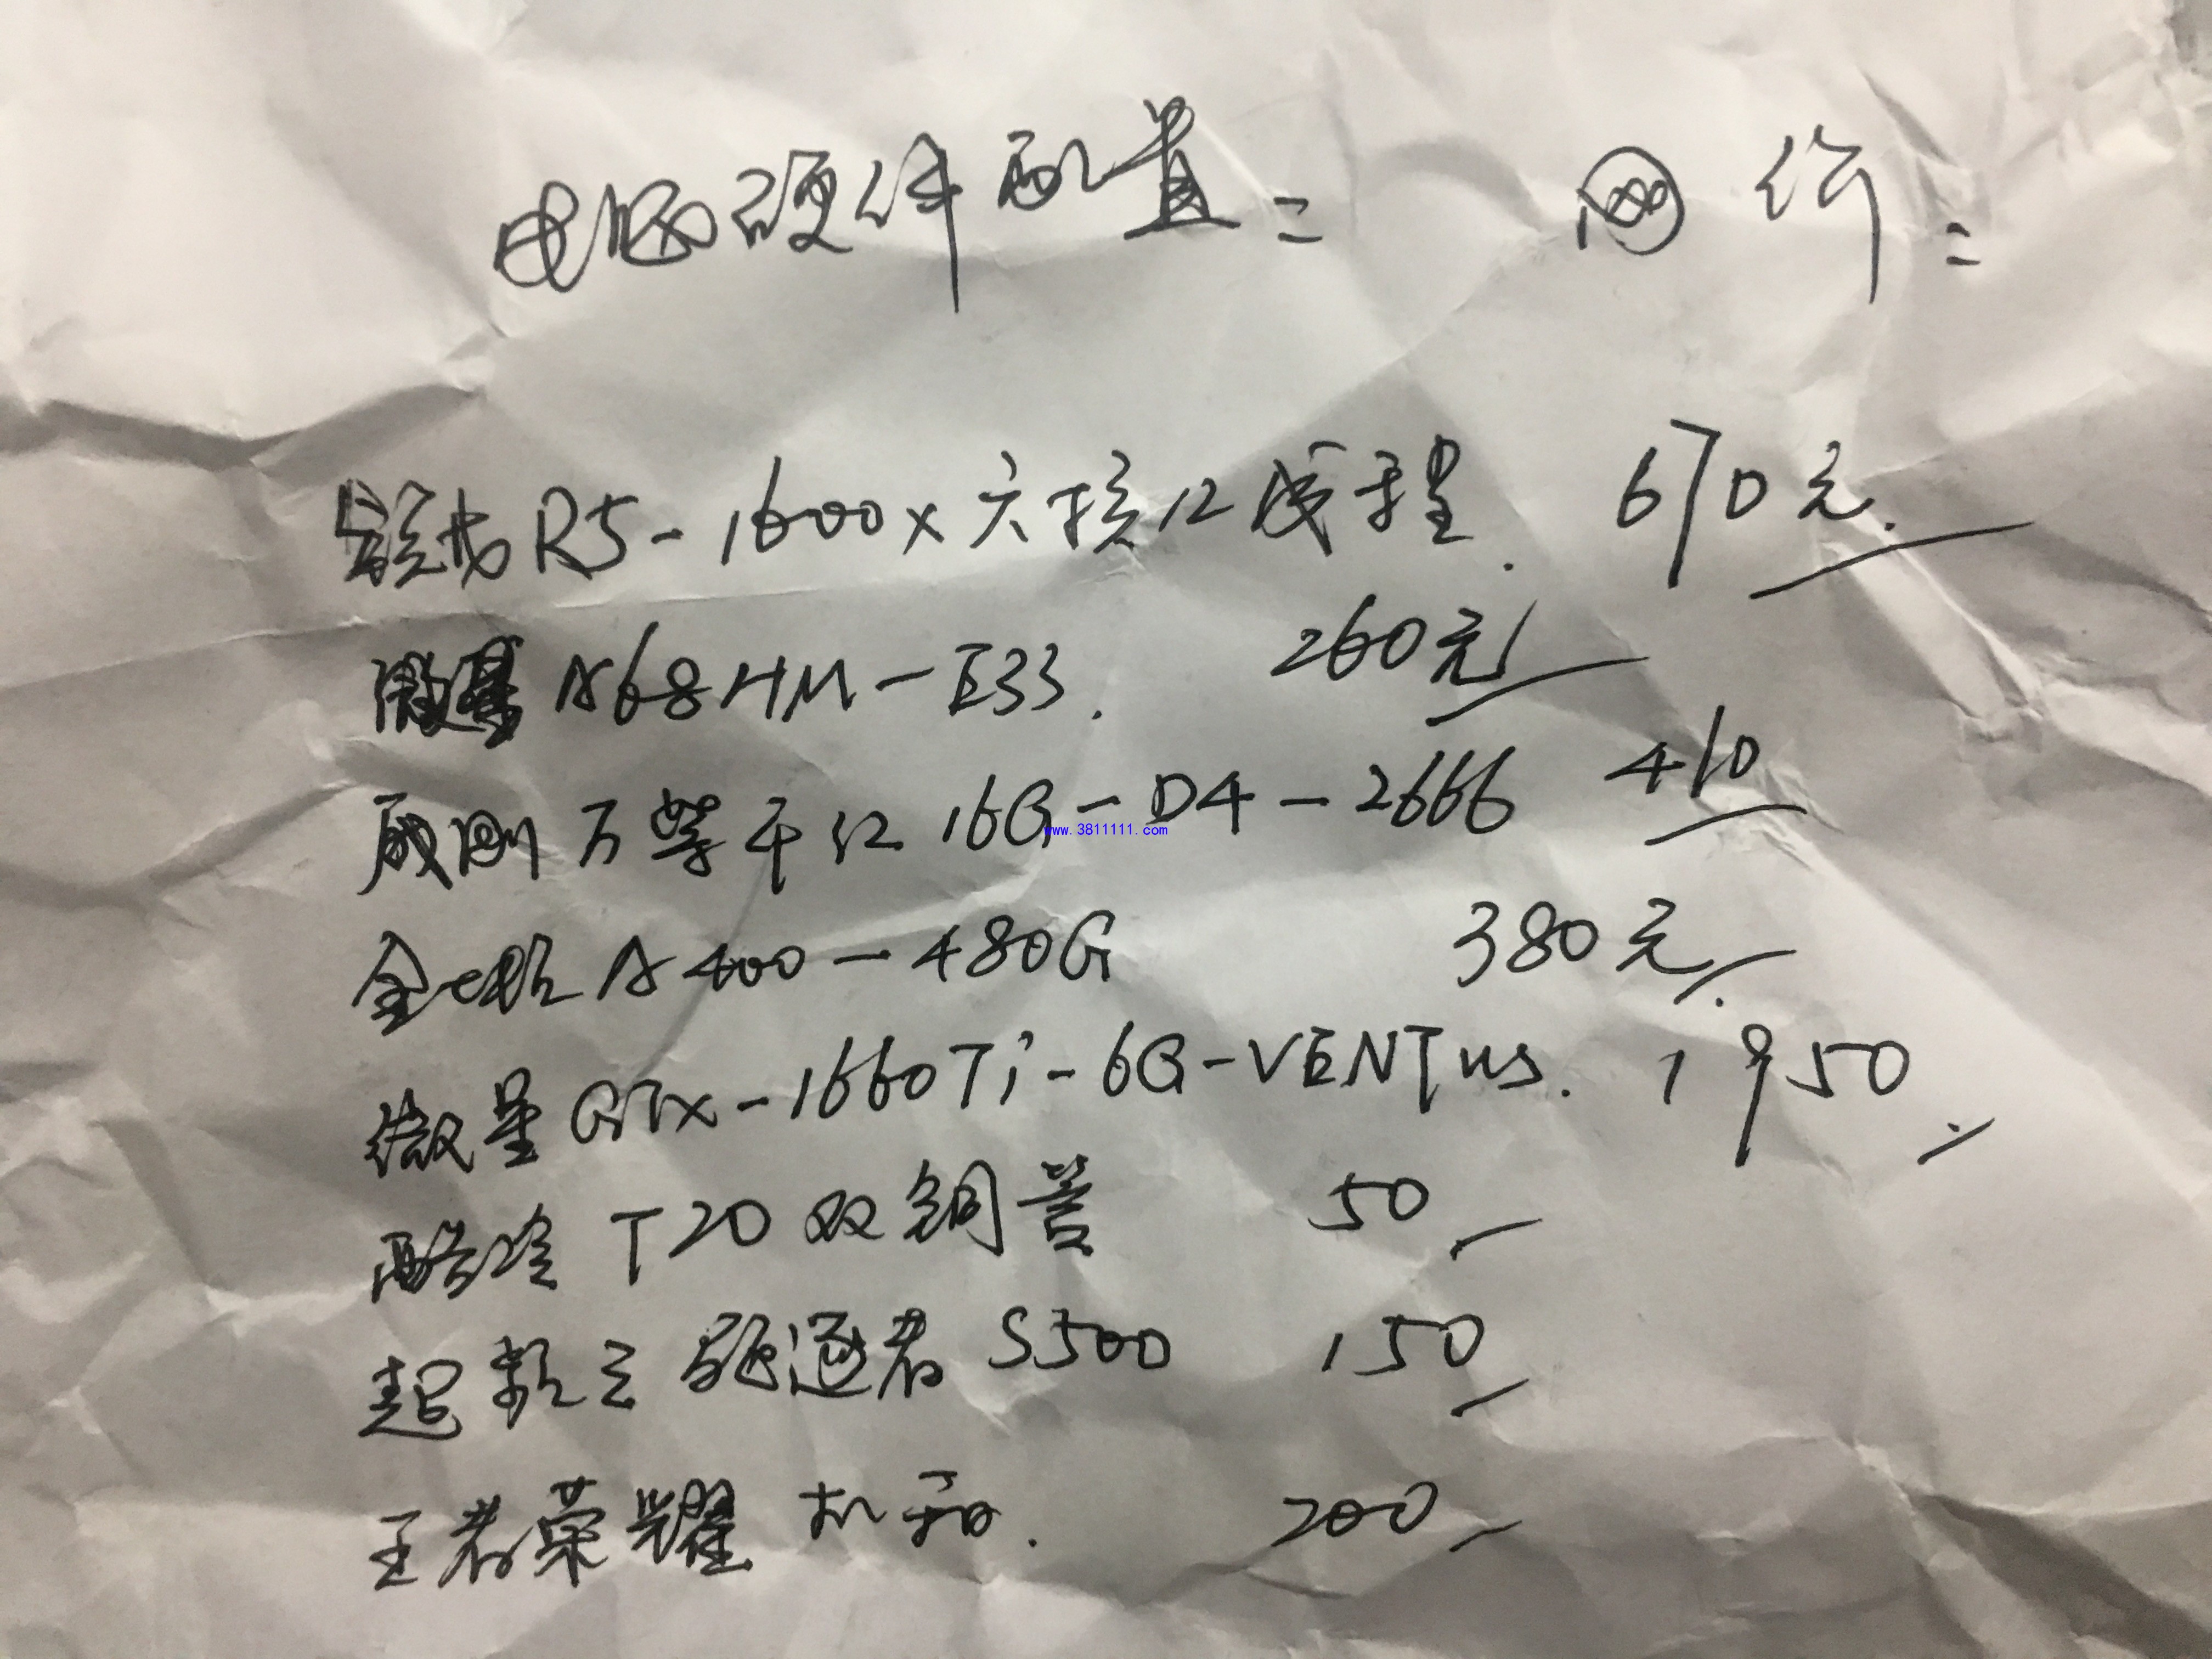 电脑硬件配置：　网价：
锐龙R5-1600x六核12线程. 670元.
微星A68HM-E33. 260元
威刚万紫千红16G-D4-2666 410
www.3811111.com
金士顿A400-480G 380元
微星GTX-1660Ti-6G-VENTus. 1950
酷冷T20双铜管 50
起航者 S500 150
王者荣耀机箱. 200